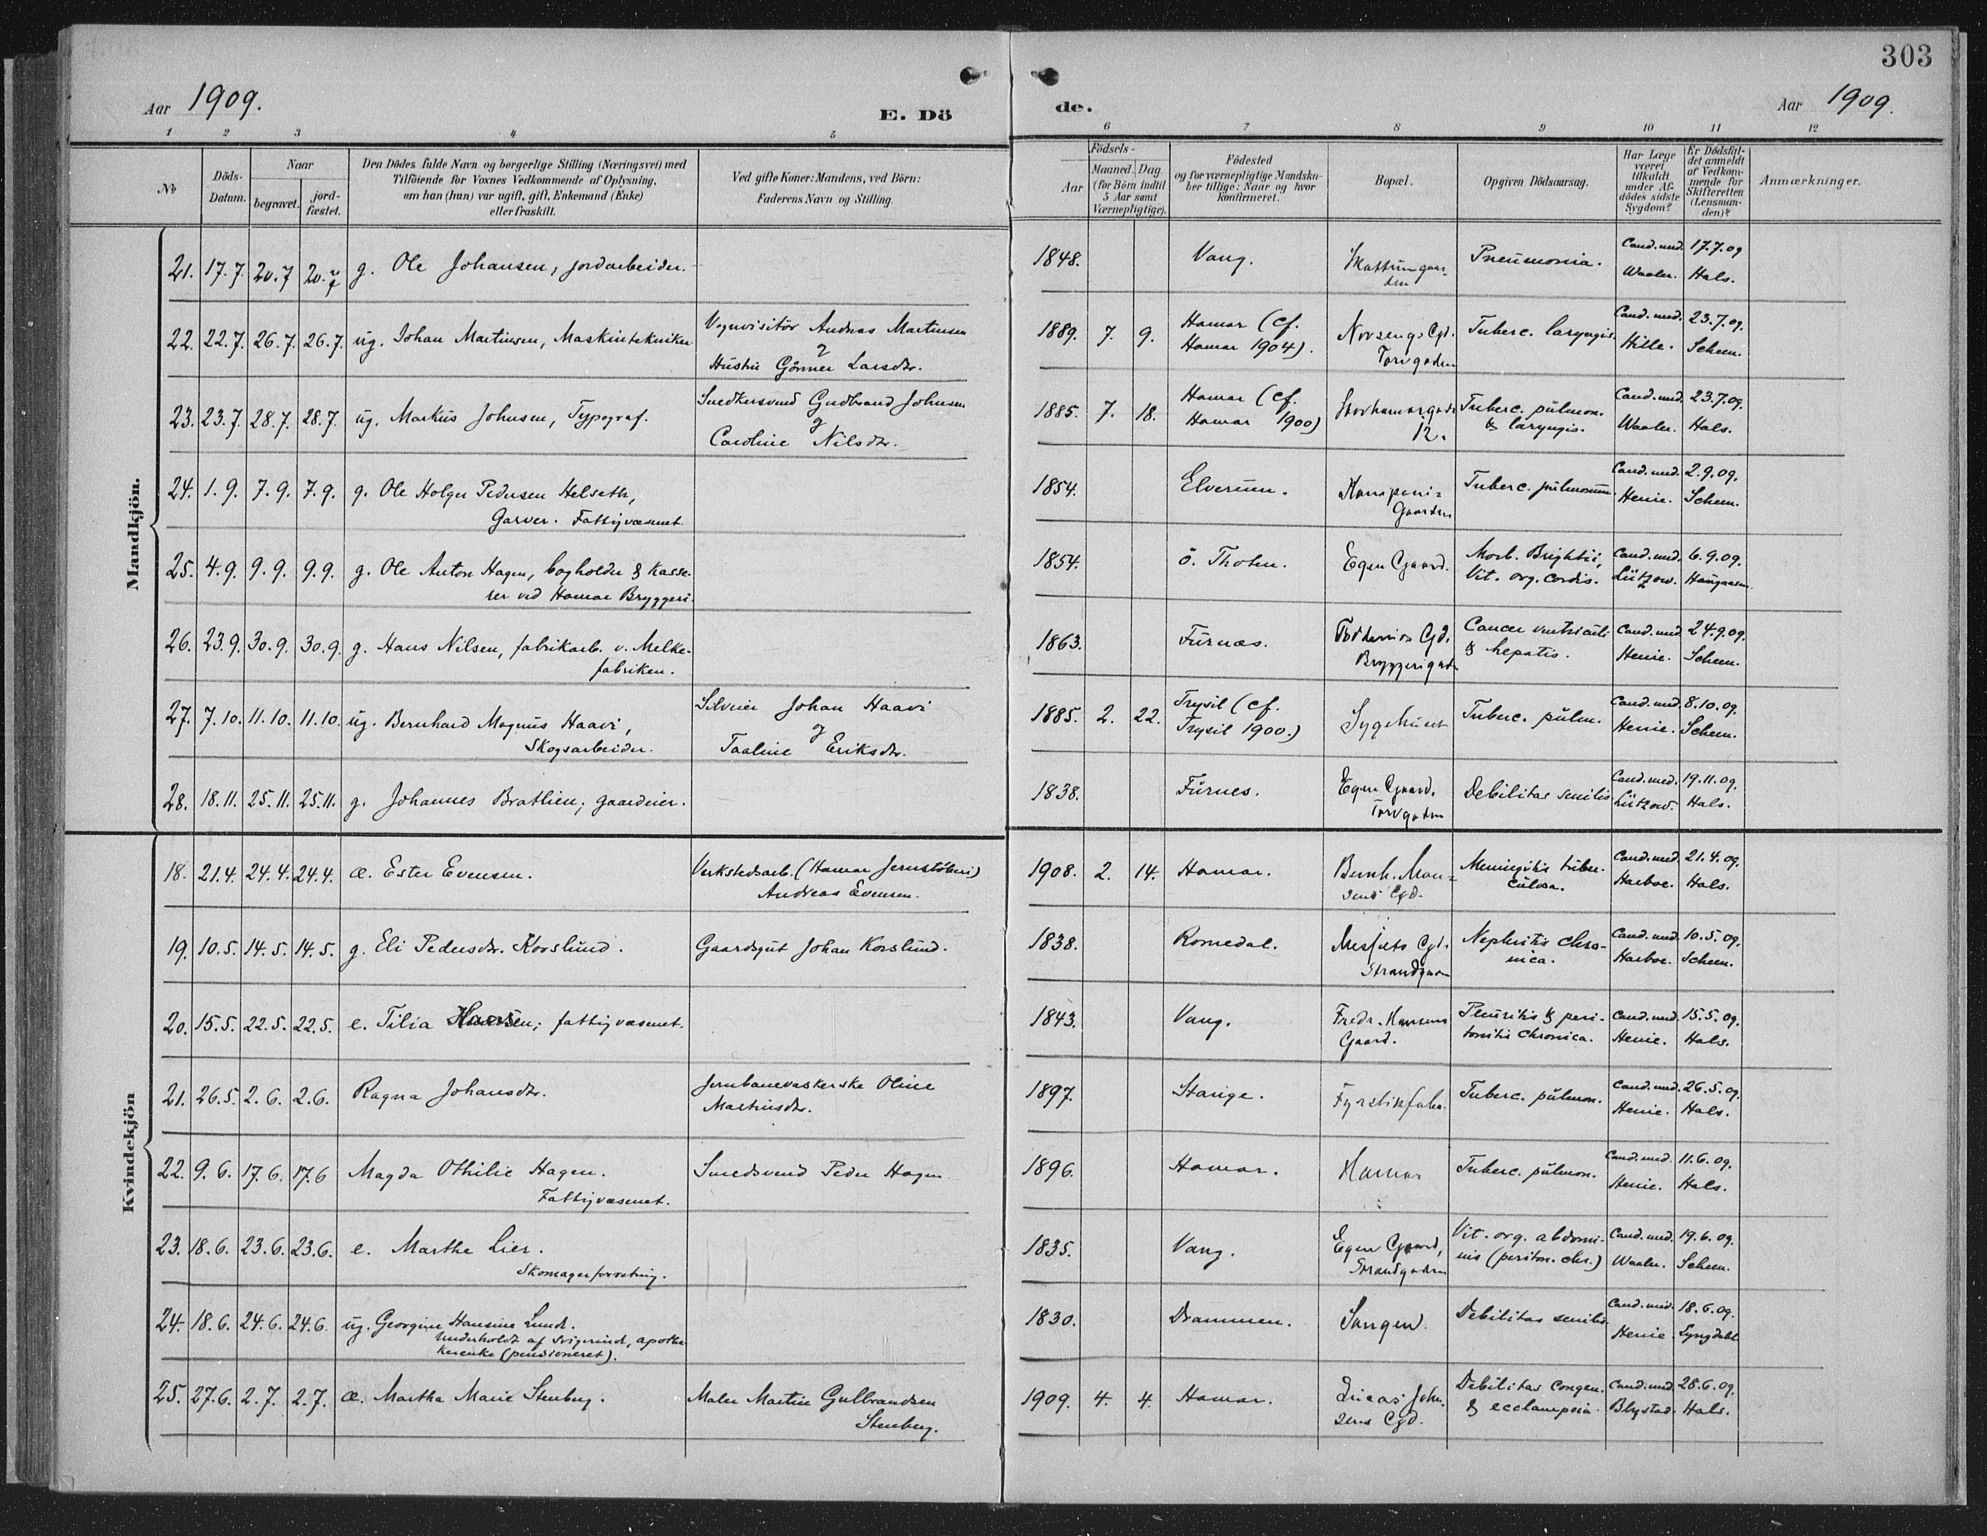 303
Aar 1909.
E. Dö
de.
Aar 1909.
1 2 3 4 5 6 7 8 9 10 11 12
No
Döds-
Datum.
Naar
begravet.
jord-
fæstet.
Den Dödes fulde Navn og borgerlige Stilling (Næringsvei) med
Tilföiende for Voxnes Vedkommende af Oplysning,
om han (hun) var ugift, gift, Enkemand (Enke)
eller fraskilt.
Ved gifte Koner: Mandens, ved Börn:
Faderens Navn og Stilling.
Födsels-
Aar
Maaned. Dag.
(for Börn indtil
5 Aar samt
Værnepligtige).
Födested
og for værnepligtige Mandska-
ber tillige: Naar og hvor
konfirmeret.
Bopæl.
Opgiven Dödsaarsag.
Har Læge
været
tilkaldt
under Af-
dödes sidste
Sygdom?
Er Dödsfal-
det anmeldt
af Vedkom-
mende for
Skifteretten
(Lensman-
den)?
Anmærkninger.
Mandkjön.
21. 17.7. 20.7 20.7 g. Ole Johansen, jordarbeider. 1848. Vang. Pneumonia. Cand. med. Waaler. 17.7.09 Hals.
22. 22.7. 26.7. 26.7. ug. Johan Martinsen, Maskintekniker Vognvisitör Andreas Martinsen
Hustru Gunner Larsdtr. 1889. 7. 9. Hamar (cf.
Hamar 1904). Norsengs Cgd.
Torvgaden Tuberc. laryngis. Cand. med. Hille. 23.7.09. Scheen.
23. 23.7. 28.7. 28.7. ug. Markus Johnsen, Typograf. Snedkersvend Gudbrand Johnsen
Caroline Nilsdtr. 1885. 7. 18. Hamar (cf.
Hamar 1900) Storhamargade
12. Tuberc. pulmon.
& laryngis. Cand. med. Waaler. 23.7.09. Hals.
24. 1.9. 7.9. 7.9. g. Ole Holger Pedersen Helseth,
Garver. Fattigvæsenet. 1854. Elverum. Kompani=
Gaarden Tuberc. pulmonum. Cand. med. Henie. 2.9.09. Scheen.
25. 4.9. 9.9. 9.9. g. Ole Anton Hagen, bogholder & Kasse-
rer ved Hamar Bryggeri. 1854. Ö. Thoten. Egen Gaard. Morb. Brightii,
Vit. org. cordis. Cand. med. Lützow. 6.9.09.
26. 23.9. 30.9. 30.9. g. Hans Nilsen, fabrikarb. v. Melke-
fabriken. 1863. Furnæs. Cgd.
Bryggerigaden Cancer ventriculi
& hepatis. Cand. med. Henie. 24.9.09. Scheen.
27. 7.10. 11.10. 11.10. ug. Bernhard Magnus Haavi,
Skogsarbeider. Johan Haavi
Taaline Eriksdtr. 1885. 2. 22. Trysil (cf.
Trysil 1900.) Sygehuset Tuberc. pulm. Cand. med. Henie. 8.10.09. Scheen.
28. 18.11. 25.11. 25.11. g. Johannes Brathlien, gaardeier. 1838. Furnes. Egen Gaard.
Torvgaden Debilitas senilis Cand. med. Lützow. 19.11.09. Hals.
Kvindekjön
18. 21.4. 24.4. 24.4. æ. Ester Evensen. Verkstedsarb. (Hamar Jernstöberi)
Andreas Evensen. 1908. 2. 14. Hamar. Bernh. Mon=
sens Cgd. Meningitis tuber-
culosa. Cand. med. Harboe. 21.4.09. Hals.
19. 10.5. 14.5. 14.5. g. Eli Pedersdtr. Korslund. Gaardsgut Johan Korslund. 1838. Romedal. Cgd.
Strandgaden Nephritis chro-
nica. Cand. med. Harboe. 10.5.09. Scheen.
20. 15.5. 22.5. 22.5. e. Tilia Hansen; fattigvæsenet. 1843. Vang. Fredr. Hansens
Gaard. Pleuritis & peri-
tonitis chronica. Cand. med. Henie. 15.5.09. Hals.
21. 26.5. 2.6. 2.6. Ragna Johansdtr. Jernbanevaskerske Oline
Mathisdtr. 1897. Stange. Tuberc. pulmon. Cand. med. Henie. 26.5.09. Hals.
22. 9.6. 17.6. 17.6 Magda Othilie Hagen.
Fattigvæsenet. Smedsvend Peder Hagen. 1896. Hamar. Hamar Tuberc. pulmon. Cand. med. Henie. 11.6.09. Hals.
23. 18.6. 23.6. 23.6. e. Marthe Lier.
Skomagerforretning. 1835. Vang. Egen Gaard,
Strandgaden Vit. org. abdomi-
nis (periton. chr.) Cand. med. Waaler. 19.6.09. Scheen.
24. 18.6. 24.6. 24.6. ug. Georgine Hansine Lund.
Underholdt af Svigerinde, apothe-
kerenke (pensioneret). 1830. Drammen. Sangen. Debilitas senilis Cand. med. Henie 18.6.09. Lyngdahl
25. 27.6. 2.7. 2.7. æ. Martha Marie Stenberg. Maler Martin Gulbrandsen
Stenberg. 1909. 4. 4. Hamar. Lucas John
sens Cgd. Debilitas congen.
& ecclampsia. Cand. med. Blystad. 28.6.09. Hals.